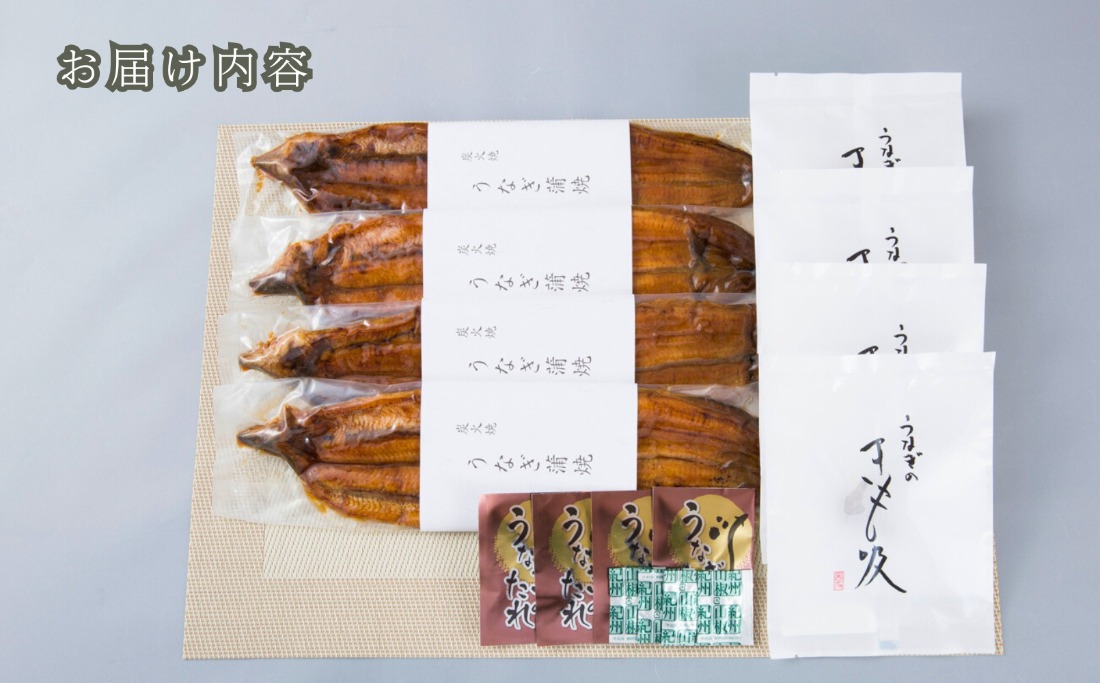 お届け内容
炭火焼
うなぎ蒲焼
炭火焼
うなぎ蒲焼
炭火焼
うなぎ蒲焼
炭火焼
うなぎ蒲焼
うなぎ
き
うなぎ
き
うなぎ
き
うなぎの
きも吸
うなぎ
たれ
うなぎ
たれ
うなぎ
うなぎ
紀州
山椒
紀州
山椒
紀州